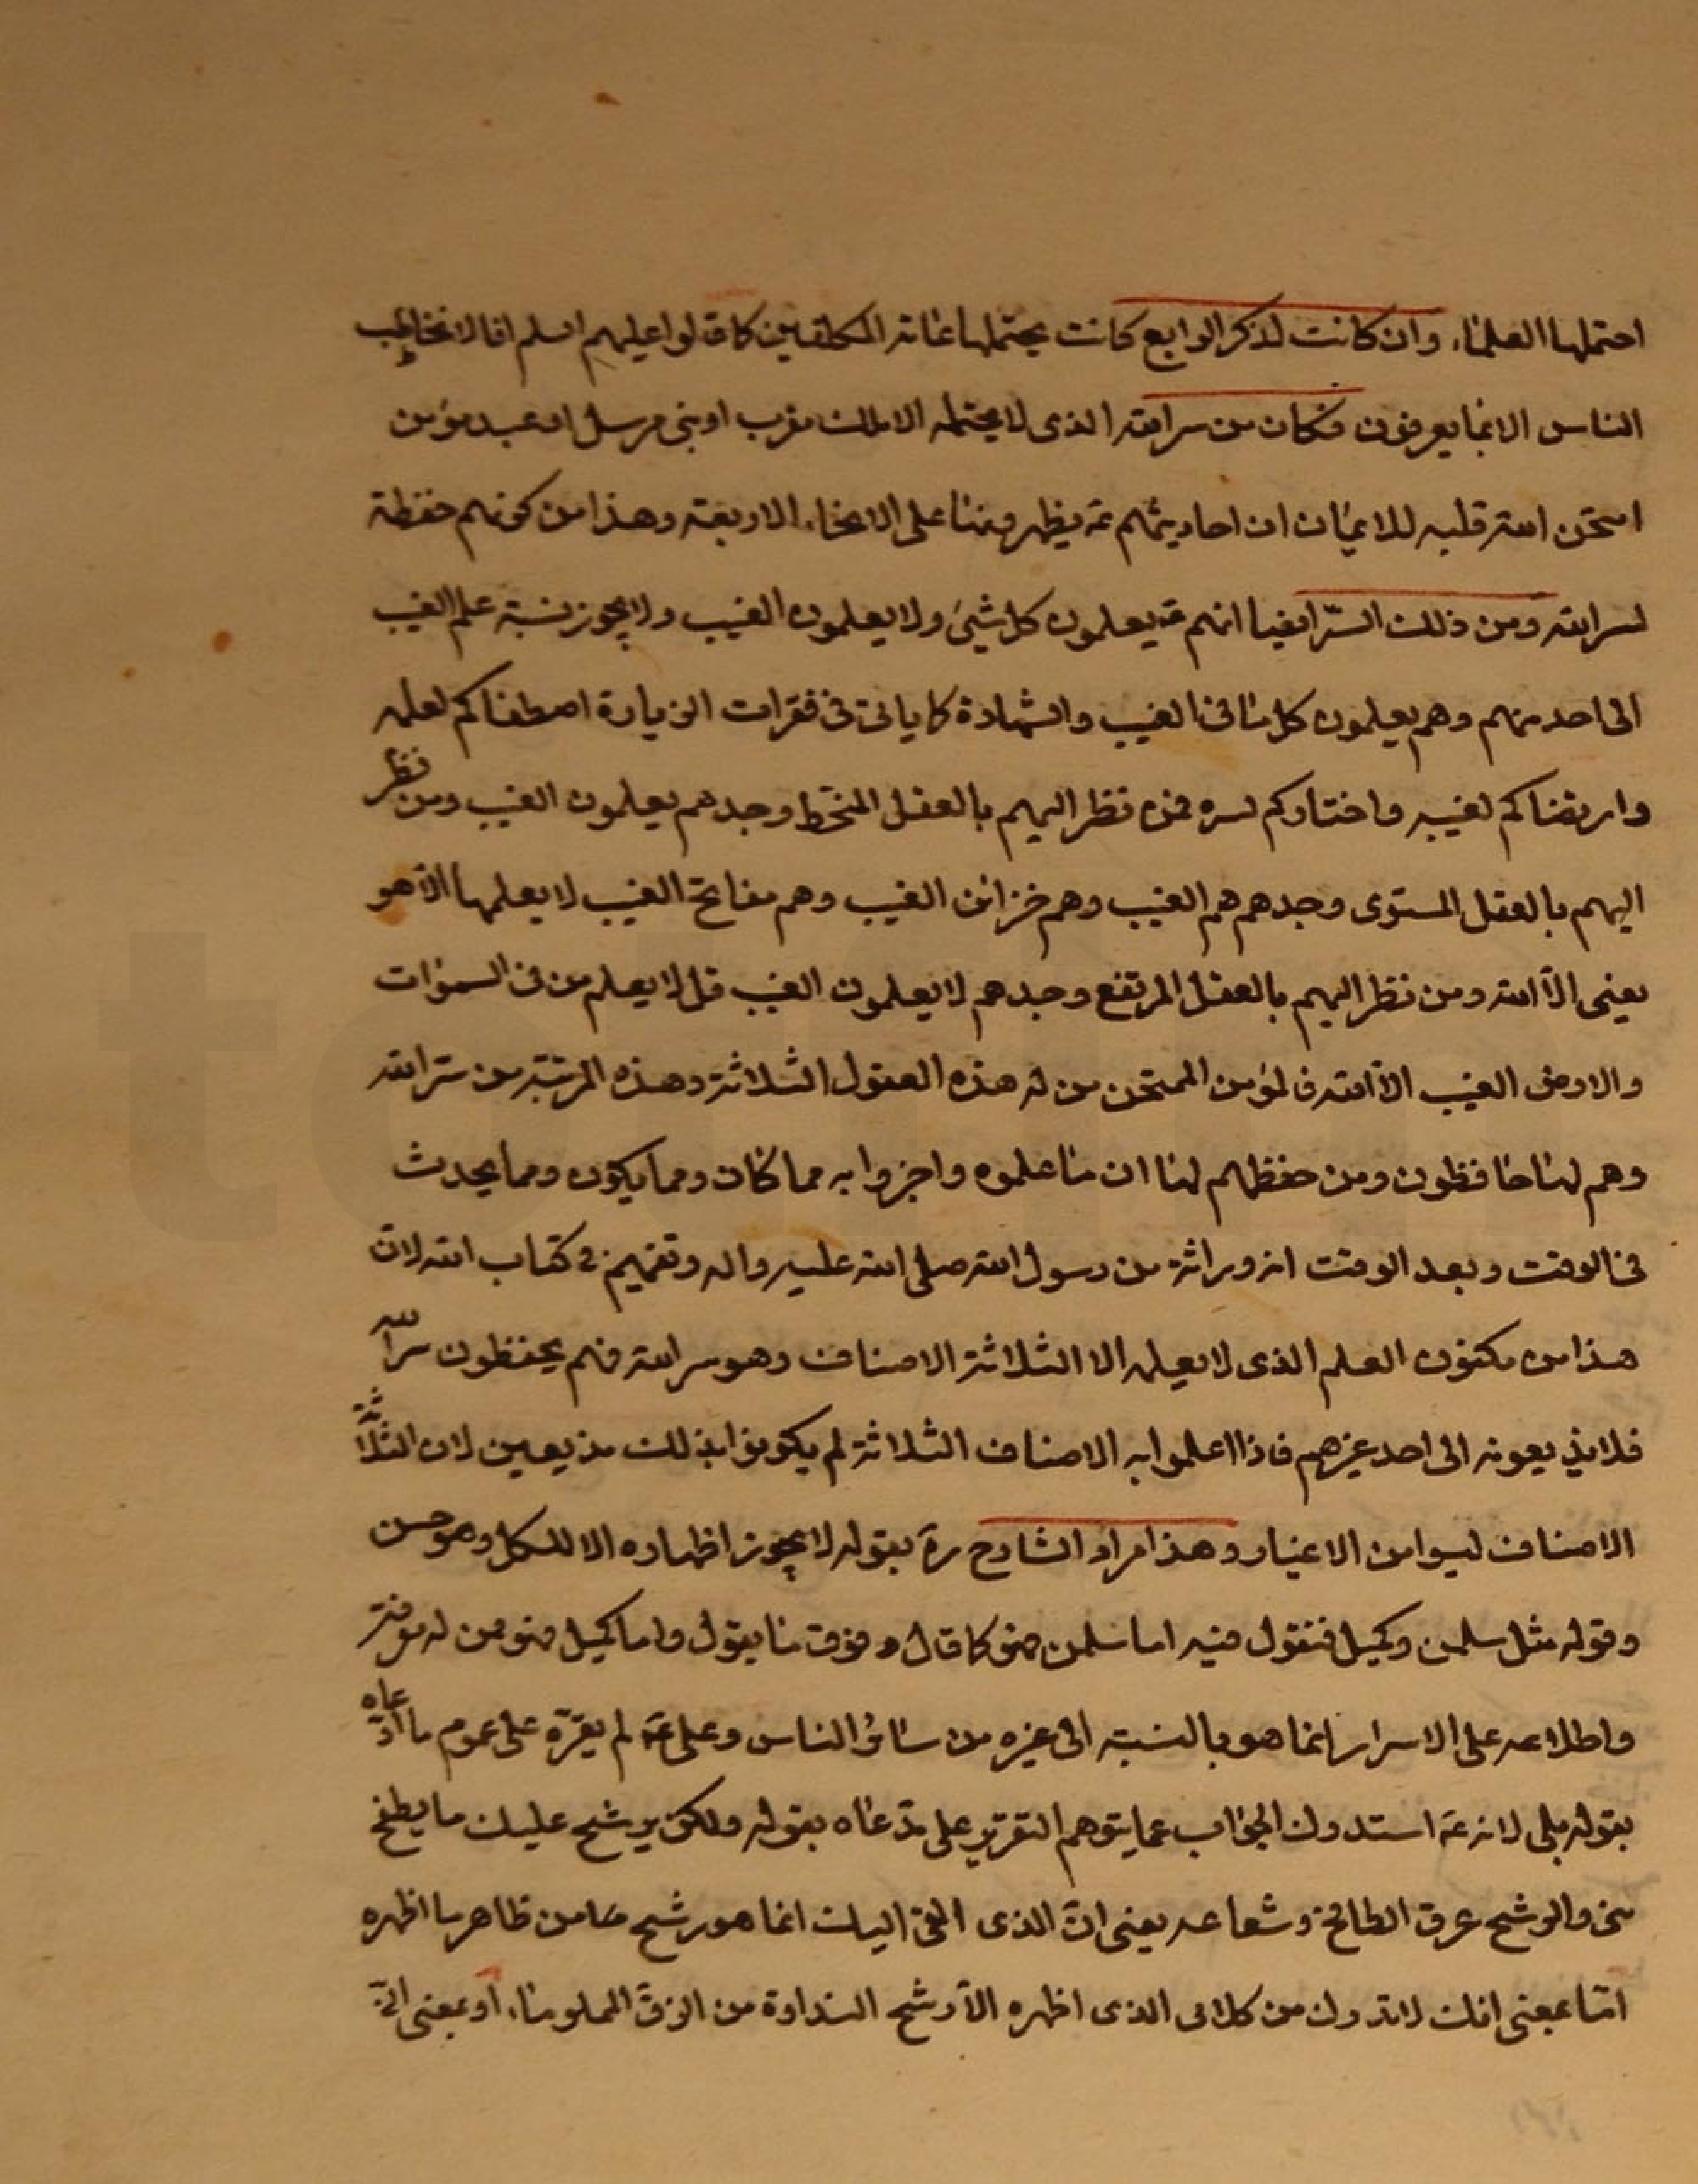 احتملها العلماء وان كانت لذكر الرابع كانت يحتملها عامة المكلفين كما قالوا عليهم السلم انا لا نخاطب
الناس الا بما يعرفون فكان من سر الله الذى لا يحتمله الا ملك مقرب او نبى مرسل او عبد مؤمن
امتحن الله قلبه للايمان ان احاديثهم ع يظهر منها على الانحاء الاربعة وهذا من كونهم حفظة
لسر الله ومن ذلك السّر ايضا انهم ع يعلمون كل شىء ولا يعلمون الغيب ولا يجوز نسبة علم الغيب
الى احد منهم وهم يعلمون كل ما فى الغيب والشهادة كما ياتى فى فقرات الزيارة اصطفاكم لعلمه
وارتضاكم لغيبه واختاركم لسره فمن نظر اليهم بالعقل المنحط وجدهم يعلمون الغيب ومن نظر
اليهم بالعقل المستوى وجدهم هم الغيب وهم خزائن الغيب وهم مفاتح الغيب لا يعلمها الّا هو
يعنى الّا الله ومن نظر اليهم بالعقل المرتفع وجدهم لا يعلمون الغيب قل لا يعلم من فى السموات
والارض الغيب الّا الله فالمؤمن الممتحن من له هذه العقول الثلاثة وهذه المرتبة من سّر الله
وهم لها حافظون ومن حفظهم لها ان ما علموه واخبروا به مما كان ومما يكون ومما يحدث
فى الوقت وبعد الوقت انه وراثة من رسول الله صلى الله عليه واله وتفهيم فى كتاب الله لانّ
هذا من مكنون العلم الذى لا يعلمه الا الثلاثة الاصناف وهو سر الله فهم يحفظون سر الله
فلا يذيعونه الى احد غيرهم فاذا اعلموا به الاصناف الثلاثة لم يكونوا بذلك مذيعين لان الثلاثة
الاصناف ليسوا من الاغيار وهذا مراد الشارح ره بقوله لا يجوز اظهاره الا للكمل وهو حسن
وقوله مثل سلمن وكميل فنقول فيه اما سلمن فهو كما قال وفوق ما يقول واما كميل فهو من له معرفة
واطلاعه على الاسرار انما هو بالنسبة الى غيره من سائر الناس وعلى ع لم يقرّه على عموم ما ادّعاه
بقوله بلى لانه ع استدرك الجواب عما يتوهم التقرير على مدّعاه بقوله ولكن يرشح عليك ما يطفح
منى والرشح عرق الطافح وشعاعه يعنى انّ الذى القى اليك انما هو رشح ما من ظاهر ما اظهره
امّا بمعنى انك لا تدرك من كلامى الذى اظهره الّا رشح النداوة من الزقّ المملو ماء او بمعنى انّى